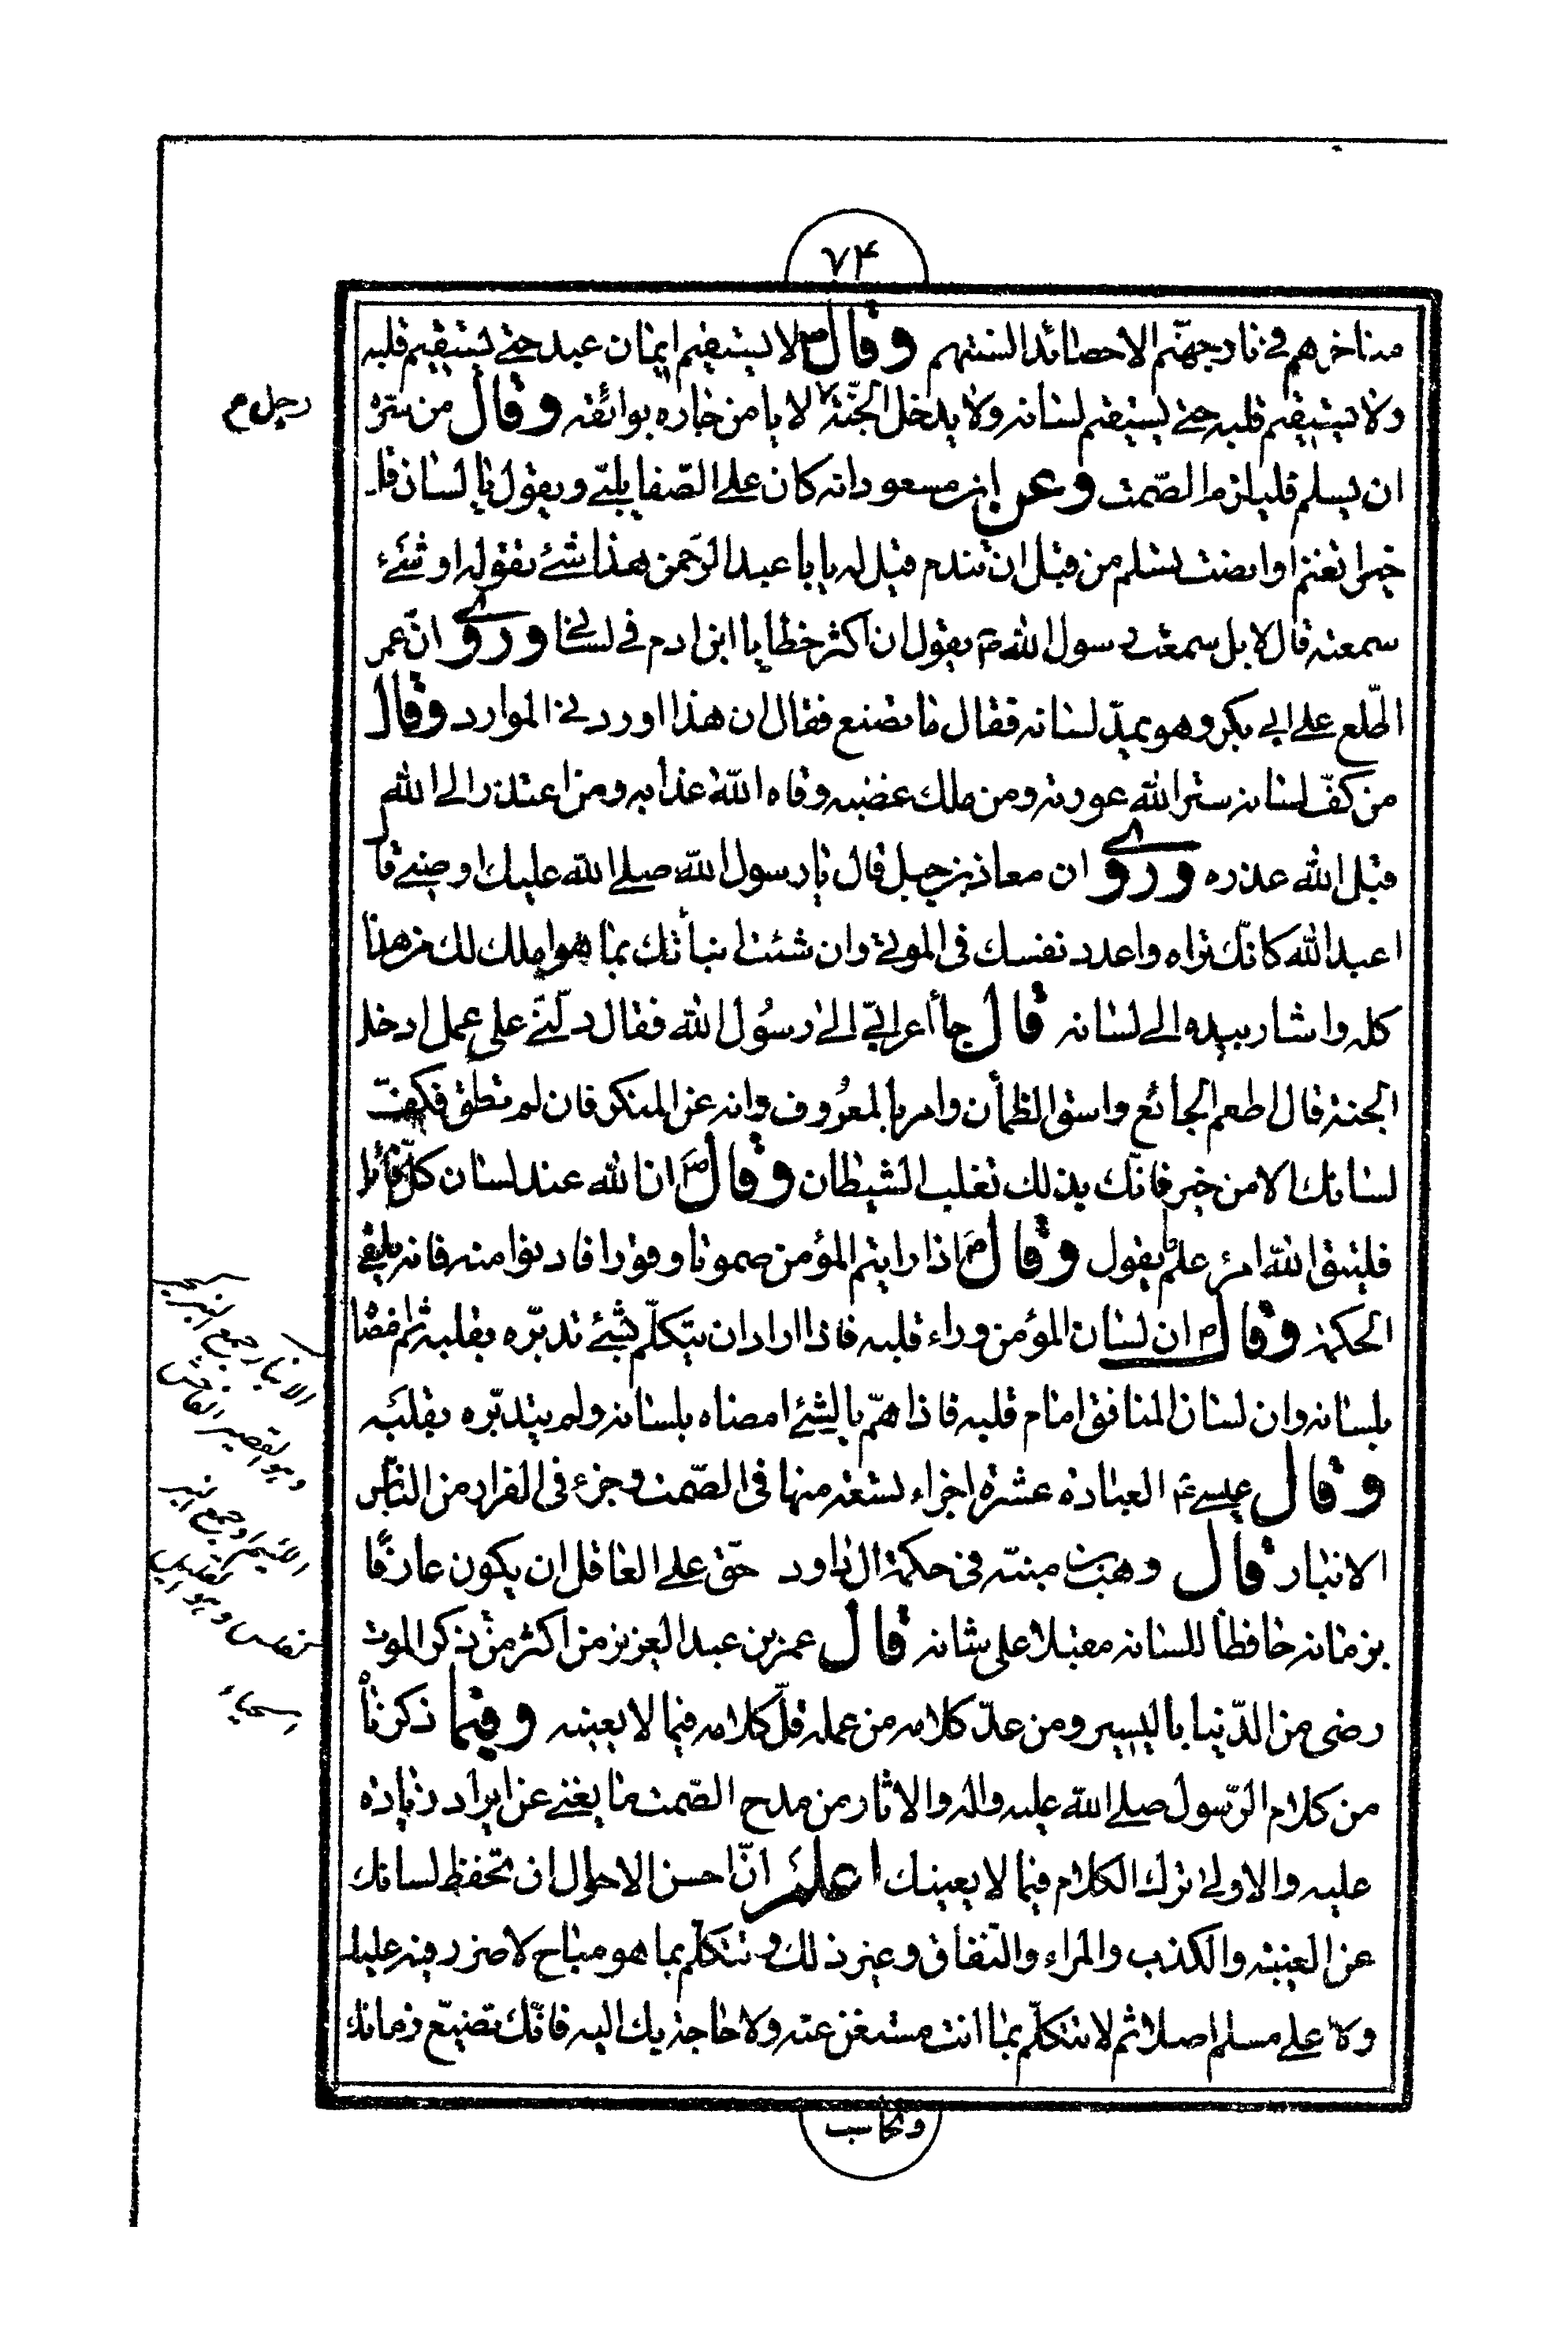 ۷۴
مناخرهم في نار جهنّم الا حصائد السنتهم وقال ص لا يستقيم ايمان عبد حتى يستقيم قلبه
ولا يستقيم قلبه حتى يستقيم لسانه ولا يدخل الجنّة لا يامن جاره بوائقه وقال من سرّه
رجل م
ان يسلم فليلزم الصّمت وعن ابن مسعود انه كان على الصّفا يلبّي ويقول يا لسان قل
خيرا تغنم او انصت تسلم من قبل ان تندم قيل له يا با عبد الرّحمن هذا شئ تقوله او شئ
سمعته قال لا بل سمعت رسول الله ص يقول ان اكثر خطايا ابن ادم في لسانه وروى انّ عمر
اطّلع على ابي بكر وهو يمدّ لسانه فقال ما تصنع فقال ان هذا اوردني الموارد وقال
من كفّ لسانه ستر الله عورته ومن ملك غضبه وقاه الله عذابه ومن اعتذر الى الله
قبل الله عذره وروى ان معاذ بن جبل قال يا رسول الله صلى الله عليك اوصني قا
اعبد الله كانّك تراه واعدد نفسك فى الموتى وان شئت انبأتك بما هو املك لك من هذا
كله واشار بيده الى لسانه قال جاء اعرابيّ الى رسول الله فقال دلّني على عمل ادخل
الجنة قال اطعم الجائع واسق الظمأن وامر بالمعروف وانه عن المنكر فان لم تطق فكفّ
لسانك الا من خير فانّك بذلك تغلب الشيطان وقال ص ان الله عند لسان كلّ قائل
فليتق الله امرء علم ما يقول وقال ص اذا رايتم المؤمن صموتا وقورا فادنوا منه فانه يلقي
الحكمة وقال م ان لسان المؤمن وراء قلبه فاذا اراد ان يتكلّم بشئ تدبّره بقلبه ثم امضا
بلسانه وان لسان المنافق امام قلبه فاذا همّ بالشئ امضاه بلسانه ولم يتدبّره بقلبه
وقال عيسى ع العبادة عشرة اجزاء تسعة منها فى الصّمت وجزء فى الفرار من النّاس
الانبار قال وهب بن منبّه في حكمة ال داود حقّ على العاقل ان يكون عارفا
بزمانه حافظا للسانه مقبلا على شانه قال عمر بن عبد العزيز من اكثر من ذكر الموت
رضى من الدّنيا باليسير ومن عدّ كلامه من عمله قلّ كلامه فيما لا يعينه وفيما ذكرناه
من كلام الرّسول صلى الله عليه واله والاثار من مدح الصّمت ما يغني عن ايراد زيادة
عليه والاولى ترك الكلام فيما لا يعينك اعلم انّ احسن الاحوال ان تحفظ لسانك
عن الغيبة والكذب والمراء والنّفاق وغير ذلك وتتكلّم بما هو مباح لا ضرر فيه عليك
ولا على مسلم اصلا ثم لا تتكلّم بما انت مستغن عنه ولا حاجة بك اليه فانّك تضيّع زمانك
وتحاسب